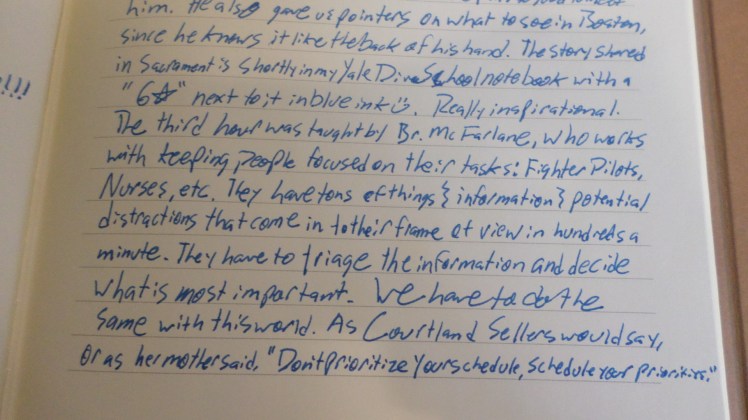 him. He also gave us pointers on what to see in Boston,
since he knows it like the back of his hand. The story shared
in Sacrament is shortly in my Yale Div. School notebook with a
"6☆" next to it in blue ink :). Really inspirational.
The third hour was taught by Br. McFarlane, who works
with keeping people focused on their tasks: Fighter Pilots,
Nurses, etc. They have tons of things & information & potential
distractions that come in to their frame of view in hundreds a
minute. They have to triage the information and decide
what is most important. We have to do the
same with this world. As Courtland Sellers would say,
or as her mother said, "Don't prioritize your schedule, schedule your priorities."
!!!!